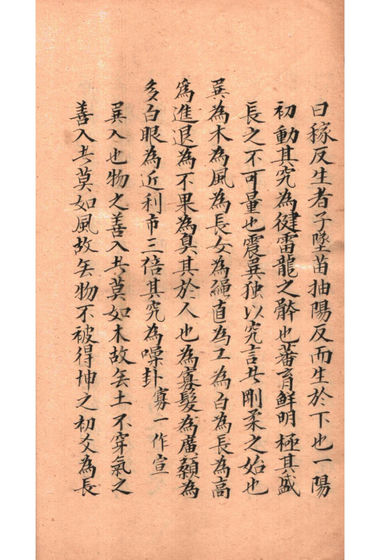 曰稼反生者子墜苗抽陽反而生於下也一陽
初動其究為健雷龍之骵也蕃育鮮明極其盛
長之不可量也震巽独以究言其剛柔之始也
巽為木為風為長女為繩直為工為白為長為高
為進退為不果為臭其於人也為寡髮為廣顙為
多白眼為近利市三倍其究為噪卦寡一作宣
巽入也物之善入其莫如木故无土不穿氣之
善入其莫如風故无物不被得坤之初爻為長